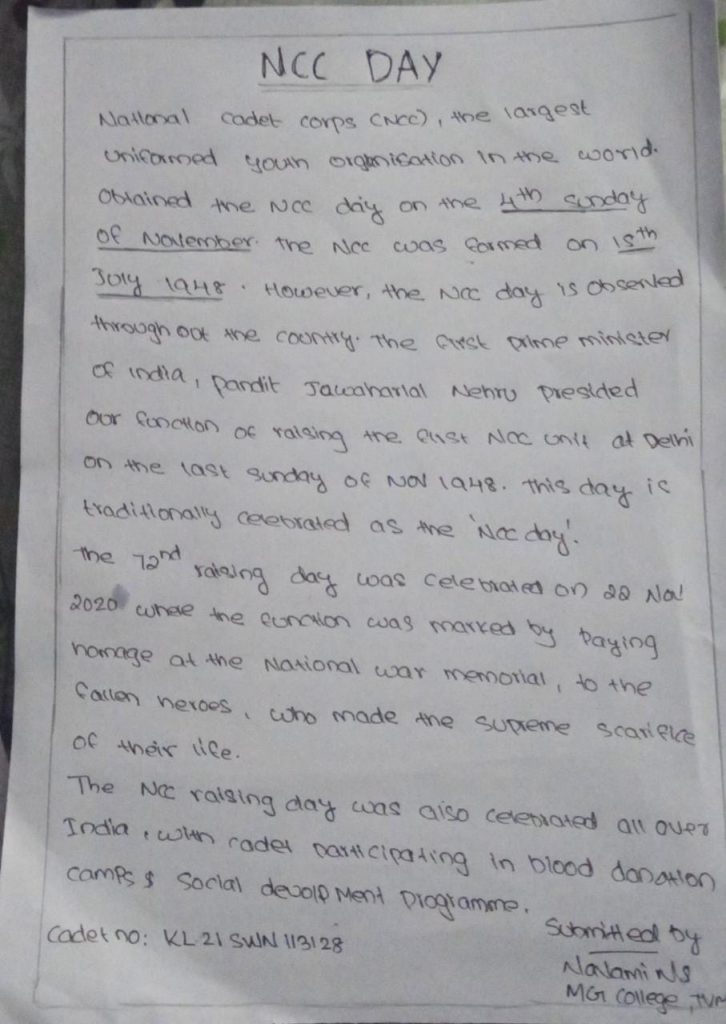 NCC DAY
National Cadet Corps (NCC), the largest
uniformed youth organisation in the world.
Obtained the NCC day on the 4th sunday
of November. The NCC was formed on 15th
July 1948. However, the NCC day is observed
through out the country. The first prime minister
of india, pandit Jawaharlal Nehru presided
our function of raising the first NCC unit at Delhi
on the last sunday of Nov 1948. This day is
traditionally celebrated as the 'NCC day'.
The 72nd raising day was celebrated on 22 Nov
2020 where the function was marked by paying
homage at the National war memorial, to the
fallen heroes, who made the supreme scarifice
of their life.
The NCC raising day was also celebrated all over
India, with cadet participating in blood donation
camps & social devolpment programme.
Cadet no: KL 21 SWN 113128
Submitted by
Navami NS
MG College, TVM